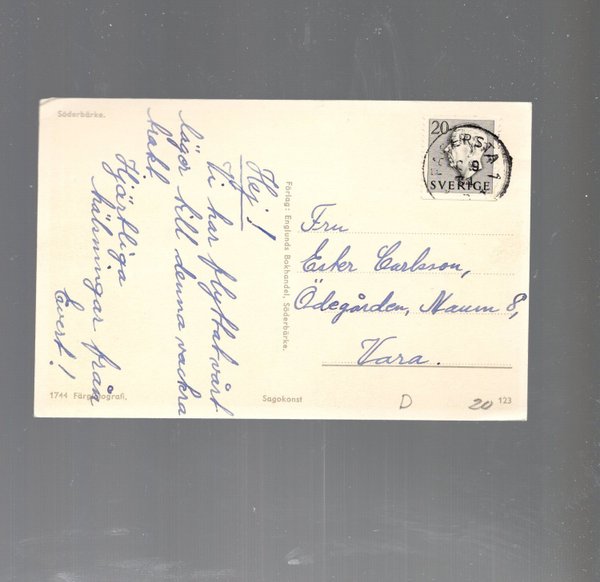 Söderbärke.
Hej!
Vi har flyttat vårt
läger till denna vackra
trakt
Hjärtliga
hälsningar från
Evert!
Förlag: Englunds Bokhandel, Söderbärke.
20
SVERIGE
ERSTA 1
9
Fru
Ester Carlsson,
Ödegården, Naum 8,
Vara.
1744 Färgfotografi.
Sagokonst
D
20
123